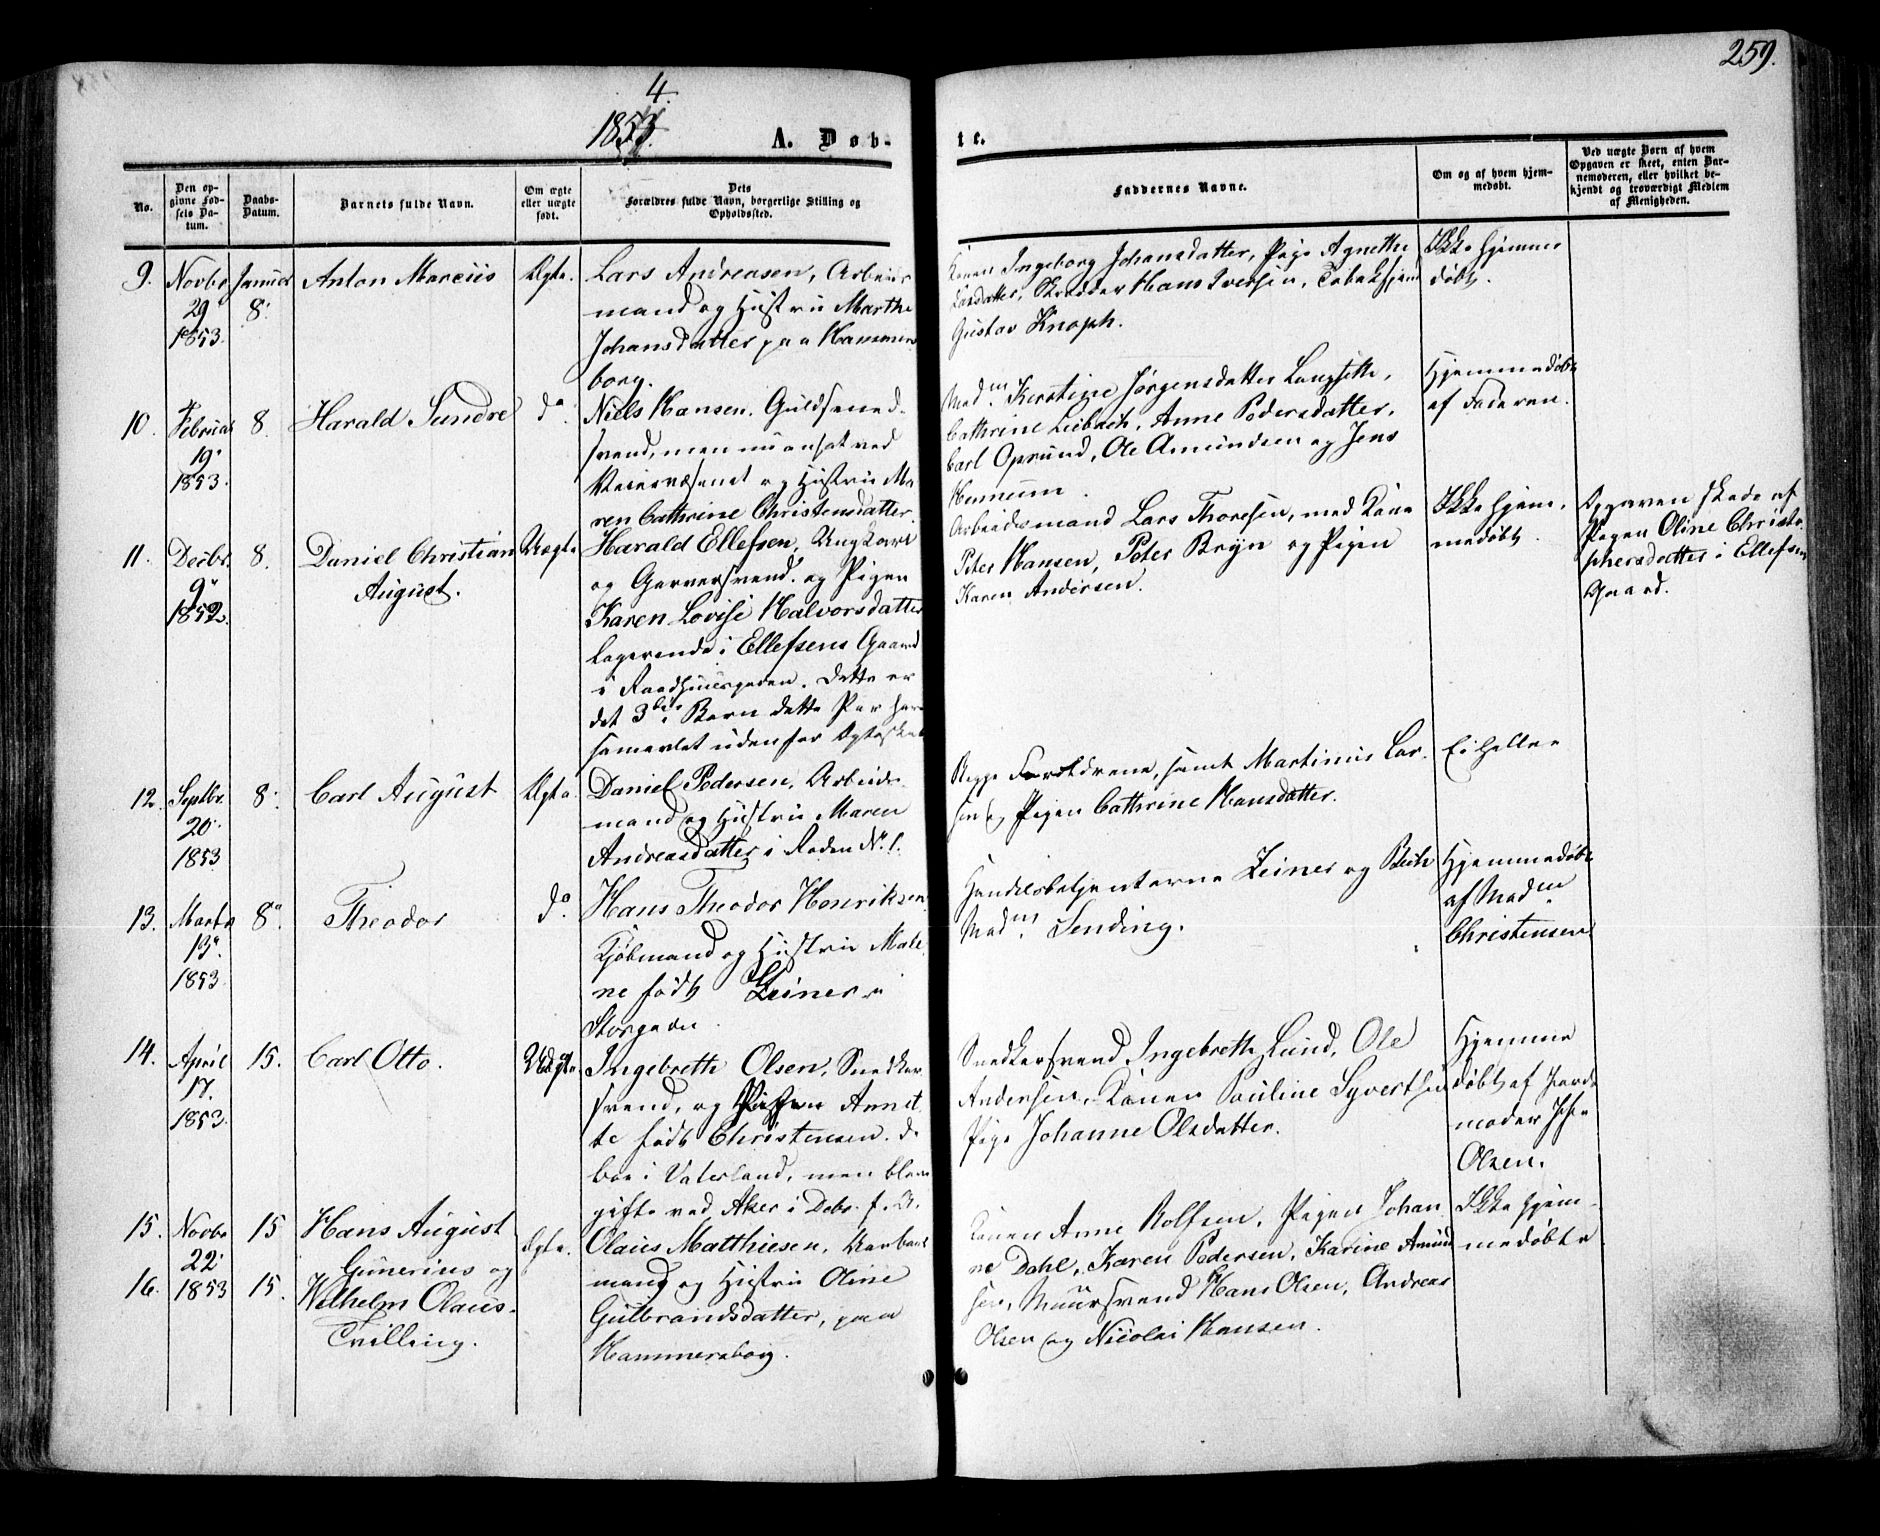 259.
4.
1853. A. Døb-
te.
No.
Den op-
givne Fød-
sels Da-
tum.
Daabs-
Datum.
Barnets fulde Navn.
Om ægte
eller uægte
født.
Dets
Forældres fulde Navn, borgerlige Stilling og
Opholdssted.
Faddernes Navne.
Om og af hvem hjem-
medøbt.
Ved uægte Børn af hvem
Opgaven er skeet, enten Bar-
nemoderen, eller hvilket be-
kjendt og troværdigt Medlem
af Menigheden.
9.
Novbr
29
1853.
Januar
8.
Anton Marcus
Ægte.
Lars Andreasen, Arbeids
mand og Hustru Marthe
Johansdatter paa Hammers
borg.
Konen Ingeborg Johansdatter, Pige Agnethe
Larsdatter, Skrædder Hans Iversen,
Gustav Knoph.
Ikke hjemme
døbt.
10.
Februar
19.
1853.
8.
Harald Sundre
do
Niels Hansen, Guldsmed-
svend, men nu ansat ved
Veivæsenet og Hustru Ma-
ren Cathrine Christensdatter.
Madm. Kerstine Jørgensdatter Langseth,
Cathrine Leibach, Anne Pedersdatter,
Carl Oprund, Ole Amundsen og Jens
Hennum.
Hjemmedøbt
af Faderen.
11.
Decbr.
9.
1852.
8.
Daniel Christian
August.
Uægte
Harald Ellefsen, Ungkarl
og Garversvend. og Pigen
Karen Lovise Halvorsdatter
logerende i Ellefsens Gaard
i Raadhuusgaden. Dette er
det 3die Barn dette Par har
samavlet udenfor Ægteskab
Arbeidsmand Lars Thoresen, med Kone
Peter Hansen, Peter Bryn og Pigen
Karen Andersen.
Ikke hjem-
medøbt
Opgaven skede af
Pigen Oline Christo
phersdatter i Ellefsens
Gaard.
12.
Septbr.
20.
1853
8.
Carl August
Ægte.
Daniel Pedersen, Arbeids-
mand og Hustru Maren
Andreasdatter i Roden No 1.
Begge Forældrene, samt Martinus Lar-
sen og Pigen Cathrine Hansdatter.
Ei heller
13.
Marts
13.
1853.
8.
Theodor
do.
Hans Theodor Henriksen
Kjøbmand og Hustru Male
ne født Zeiner i
Storgaden.
Handelsbetjenterne Zeiner og
Madm. Sending.
Hjemmedøbt
af Madm.
Christensen
14.
April
17.
1853.
15.
Carl Otto.
Uægte.
Ingebreth Olsen, Snedker
svend, og Pigen Annet
te født Christensen. de
boe i Vaterland, men bleve
gifte ved Aker i Debr. f. A.
Snedkersvend Ingebreth Lund, Ole
Andersen, Konen Pauline Syvertsen
Pige Johanne Olsdatter.
Hjemme
døbt af Jorde
moder
Olsen.
15.
16.
Novbr
22
1853
15
15.
Hans August
Gunerius og
Wilhelm Olaus.
Tvilling.
Ægte.
Olaus Matthiesen, Arbeids
mand og Hustru Oline
Gulbrandsdatter, paa
Hammersborg.
Konen Anne Rolfsen, Pigen Johan
ne Dahl, Karen Pedersen, Karine Amund
sen, Muursvend Hans Olsen, Andreas
Olsen og Nicolai Hansen.
Ikke hjem-
medøbte